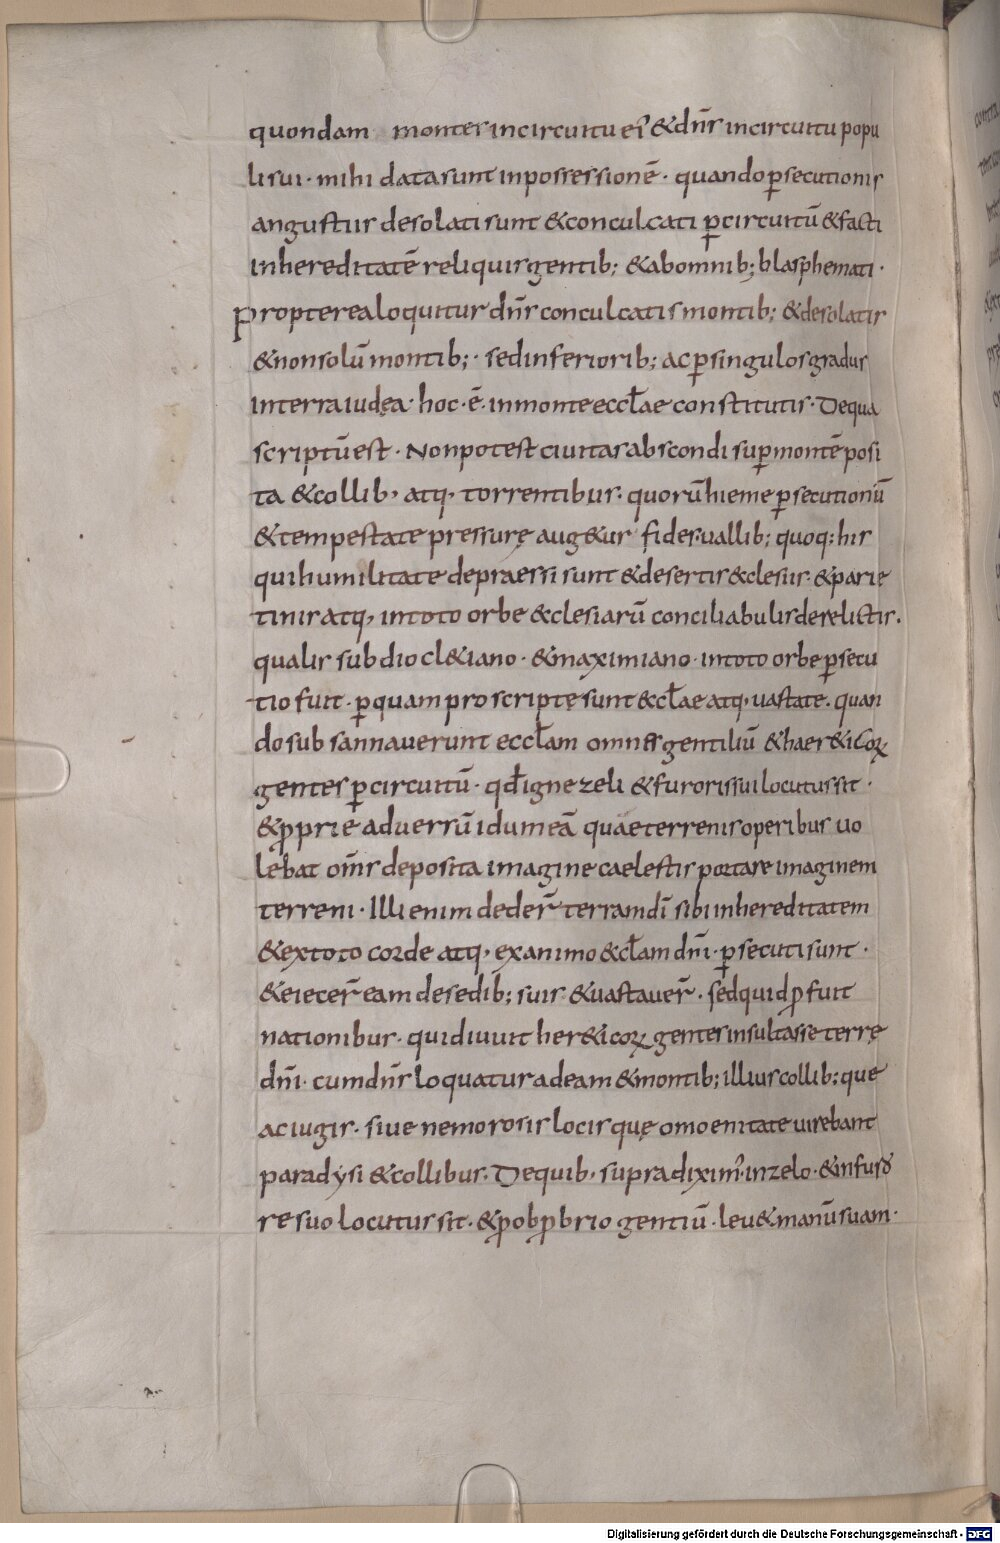 quondam montes incircuitu ei᷒ & dn̄s incircuitu popu
li sui · mihi data sunt inpossessionē · quando ꝑsecutionis
angustiis desolati sunt & conculcati ꝑcircuitū & facti
inhereditatē reliquis gentib; & abomnib; blasphemati ·
Propterea loquitur dn̄s conculcatis montib; & desolatis
& nonsolū montib; · sed inferiorib; ac ꝑ singulos gradus
interra iudęa · hoc · ē · inmonte eccl̄ae constitutis · De qua
scriptū est · Non potest ciuitas abscondi suꝑ montē posi
ta & collib, atq, torrentibus · quorū hieme ꝑsecutionū
& tempestate pressurę aug&ur fides · uallib; quoq; his
qui humilitate depraessi sunt & desertis &clesiis · & parie
tinis atq, intoto orbe &clesiarū conciliabulis derelictis ·
qualis sub diocl&iano · & maximiano · intoto orbe ꝑsecu
tio fuit · ꝑquam proscriptę sunt &cl̄ae atq, uastate · quan
do subsannauerunt eccl̄am omnes gentiliū & haer&icoꝝ
gentes ꝑcircuitū · qđ igne zeli & furoris sui locutus sit ·
& ꝓprie aduersū idumeā quae terrenis operibus uo
lebat om̄s deposita imagine caelestis portare imaginem
terreni · Illi enim dederт̄ terram dī sibi inhereditatem
& extoto corde atq, exanimo &cl̄am dn̄i · ꝑsecuti sunt ·
& eiecer̄ eam desedib; suis · & uastauer̄ · sed quid ꝓfuit
nationibus · qui diuuit her&icoꝝ gentes insultasse terrę
dn̄i · cum dn̄s loquatur adeam & montib; illius collib; que
ac iugis · siue nemorosis locis quę omoenitate uirebant
paradysi & collibus · De quib, supra dixim᷒ · inzelo · & infuro
re suo locutus sit · & ꝓ obꝓbrio gentiū · leu& manū suam ·
Digitalisierung gefördert durch die Deutsche Forschungsgemeinschaft - DFG